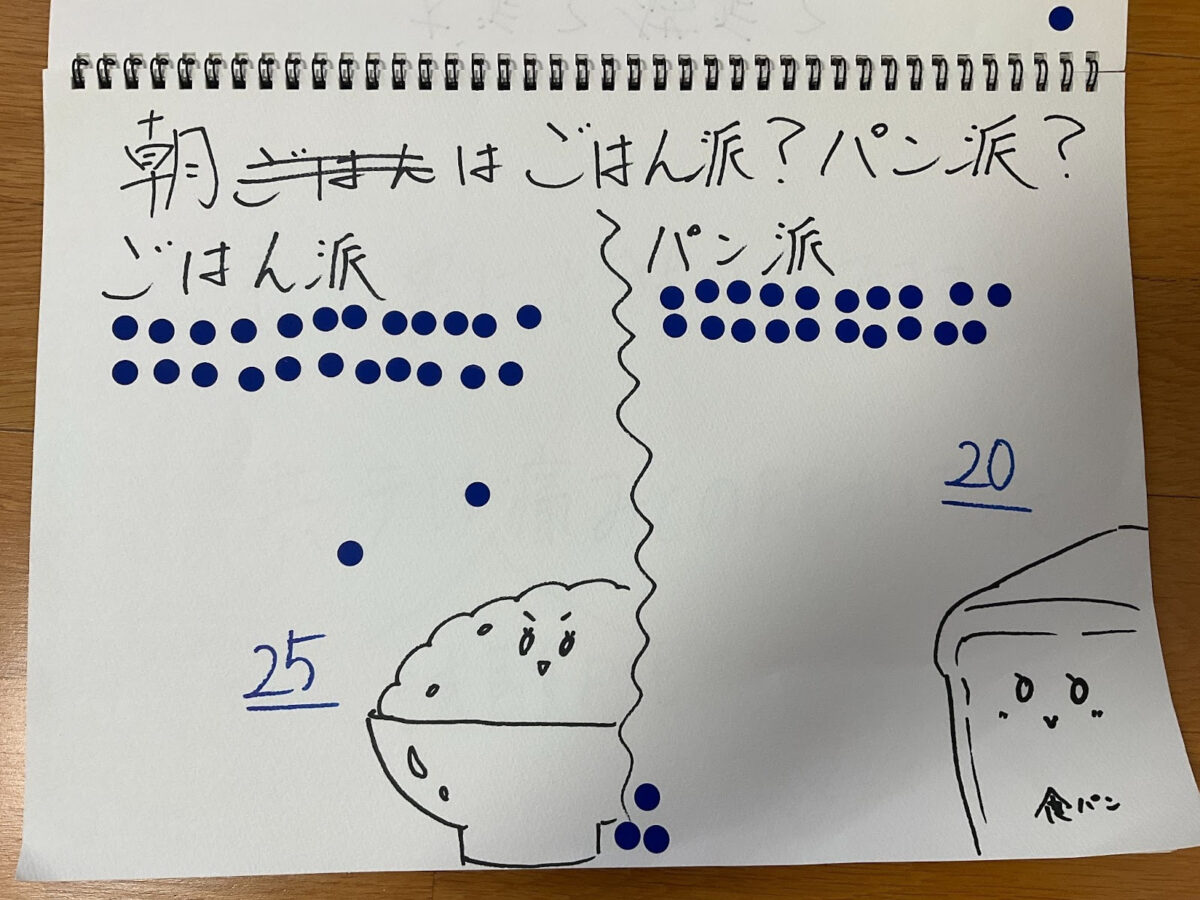 朝ごはんはごはん派?パン派?
ごはん派
パン派
20
25
食パン